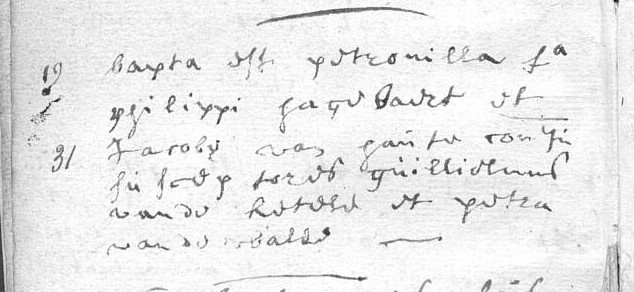 19 bapta est petronilla fa
philippi hagebaert et
31 Jacobe van haute coniu
su scep tores guillielmus
vande ketele et petra
vande walle